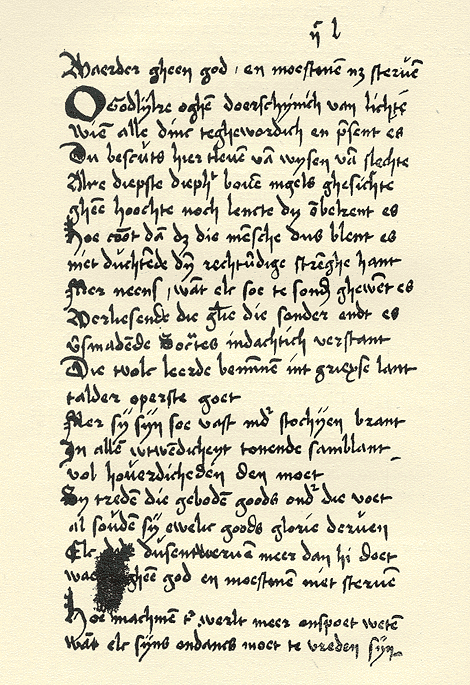 ij l
Waerder gheen god, en moestmē nz steruē
O Godlijke oghē doerschijnich van lichte
wien alle dinc teghewordich en psent es
Du bescuts hier tleuē vā wysen vā slechte
Alre diepste dieph' bouē ingels ghesichte
gheē hoochte noch lencte dy ōbekent es
hoe coōt dā dz die mēsche dus blent es
niet duchtēde dyn rechtūdige strēghe hant
Mer neens, wāt elc soe te sonđ ghewēt es
Verliesende die glīe die sonder endt es
v̄smadede Socrtes indachtich verstant
Die tvolc leerde beminnen int griexse lant
talder operste goet
Mer sy syn soe vast mđ stochijen brant
In allē wtwēdicheyt tonende samblant
vol hou̅erdichedēn den moet
Sy tredēn die gebodēn goods onđ die voet
al soudēn sy ewelic goods glorie deruen
Elc dusentweruen meer dan hi doet
wae gheē god en moestmē niet steruēn
Hoe machmē t' werlt meer onspoet wetē
wāt elc sijns ondancs moet te vreden sijn